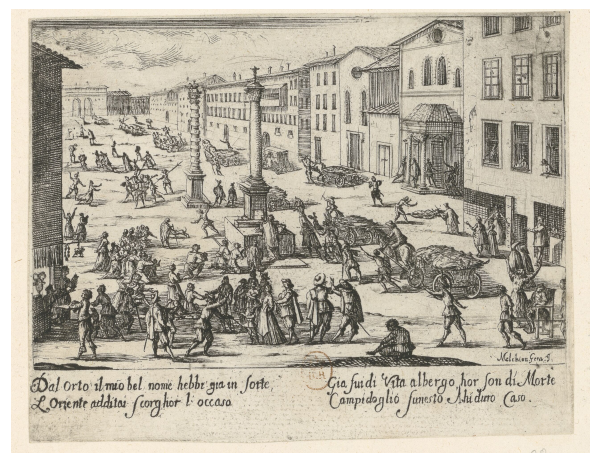 Melchior Gera. f.
Dal Orto il mio bel nome hebbi gia in sorte,
L'Oriente additai scorg'hor l'occaso
Gia fui di Vita albergo, hor son di Morte
Campidoglio funesto Ahi duro Caso.